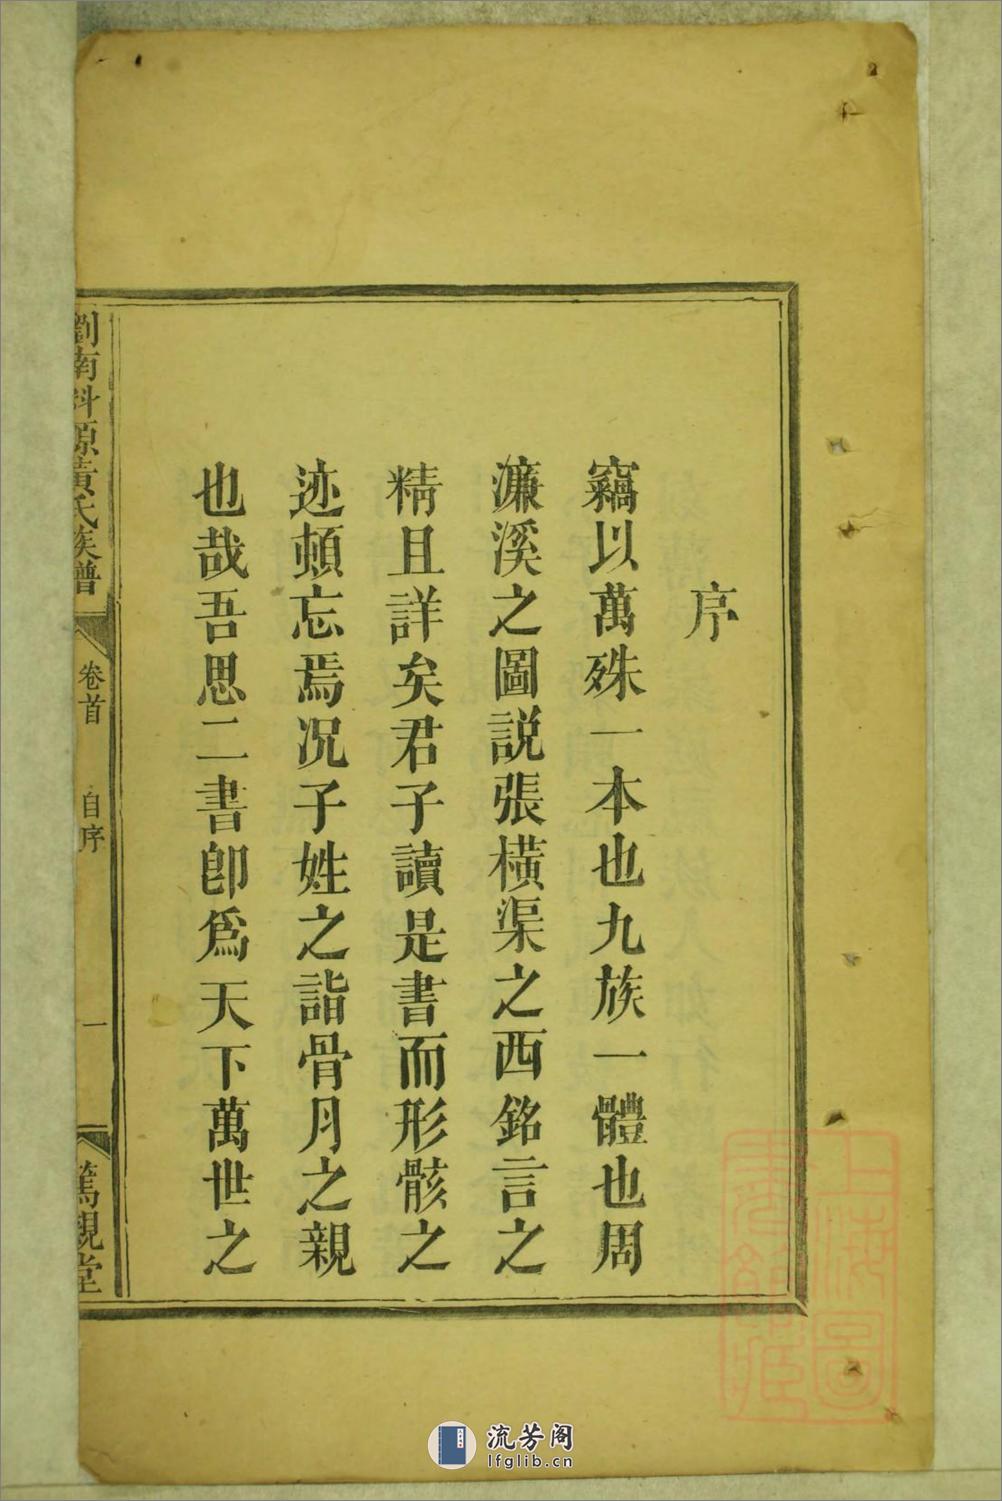 序
竊以萬殊一本也九族一體也周
濂溪之圖説張橫渠之西銘言之
精且詳矣君子讀是書而形骸之
迹頓忘焉况子姓之詣骨月之親
也哉吾思二書卽爲天下萬世之
劉南科源黃氏族譜
卷首
自序
一
篤親堂
上海圖
書館藏
流芳阁
lfglib.cn